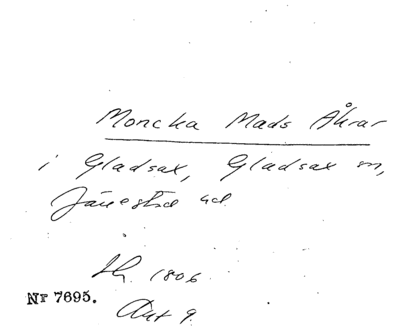 Moncka Mads Åkrar
i Gladsax, Gladsax sn,
Järrestad hd
Sk. 1806.
Nr 7695.
Akt 9.